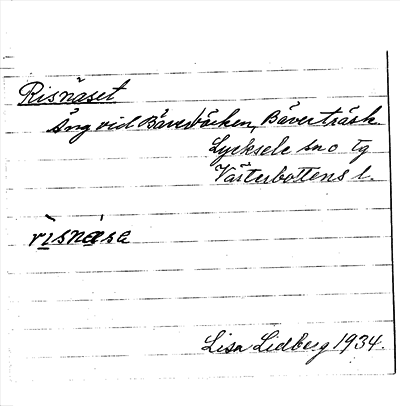 Risnäset
Äng vid Bäverbäcken, Bäverträsk.
Lycksele sn o tg
Västerbottens l.
rìsnǽsa
Lisa Lidberg 1934.